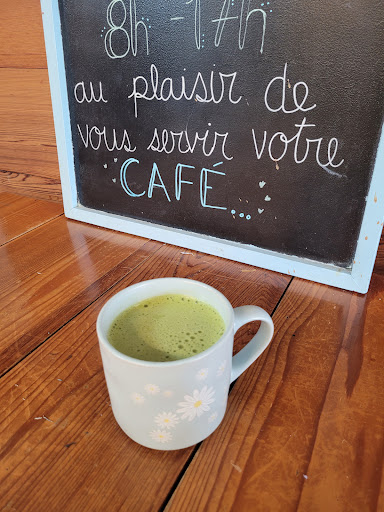 8h -17h
au plaisir de
vous servir votre
CAFÉ...